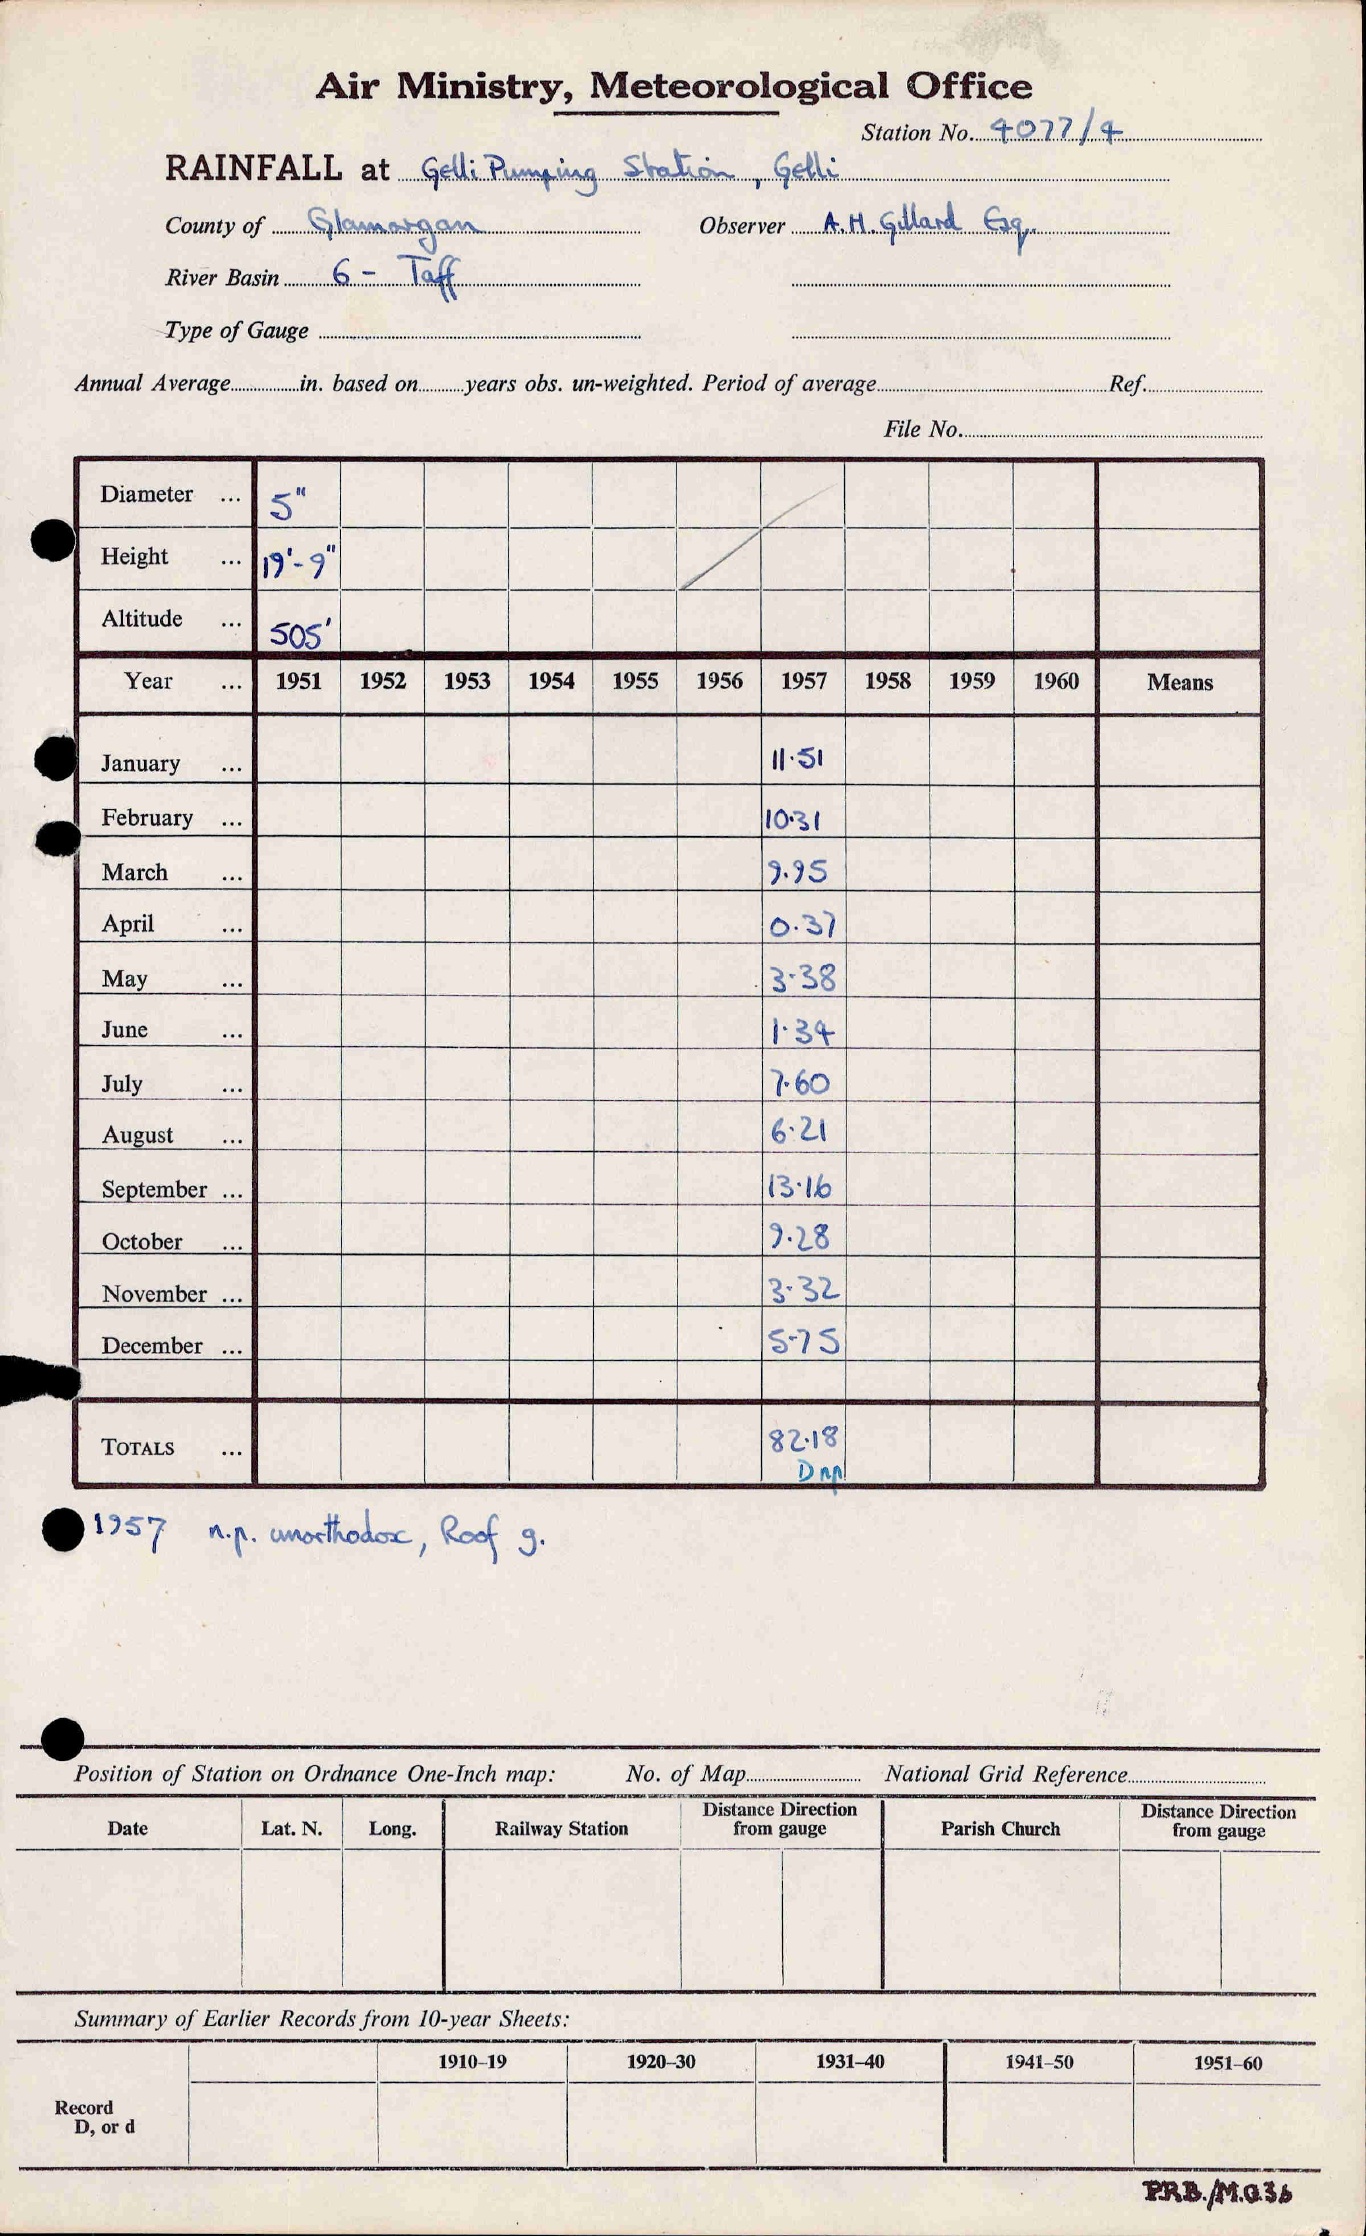 Air Ministry, Meteorological Office
Station No. 4077/4
RAINFALL at Gelli Pumping Station, Gelli
County of Glamorgan Observer A.H. Gillard Esq.
River Basin 6 - Taff
Type of Gauge
Annual Average in. based on years obs. un-weighted. Period of average Ref.
File No.
Diameter ... 5"
Height ... 19'-9"
Altitude ... 505'
Year ... 1951 1952 1953 1954 1955 1956 1957 1958 1959 1960 Means
January ... 11.51
February ... 10.31
March ... 9.95
April ... 0.37
May ... 3.38
June ... 1.34
July ... 7.60
August ... 6.21
September ... 13.16
October ... 9.28
November ... 3.32
December ... 5.75
TOTALS ... 82.18
D np
1957 n.p. unorthodox, Roof g.
Position of Station on Ordnance One-Inch map: No. of Map National Grid Reference
Date Lat. N. Long. Railway Station Distance Direction from gauge Parish Church Distance Direction from gauge
Summary of Earlier Records from 10-year Sheets:
1910–19 1920–30 1931–40 1941–50 1951–60
Record
D, or d
P.R.B./M.O.3b